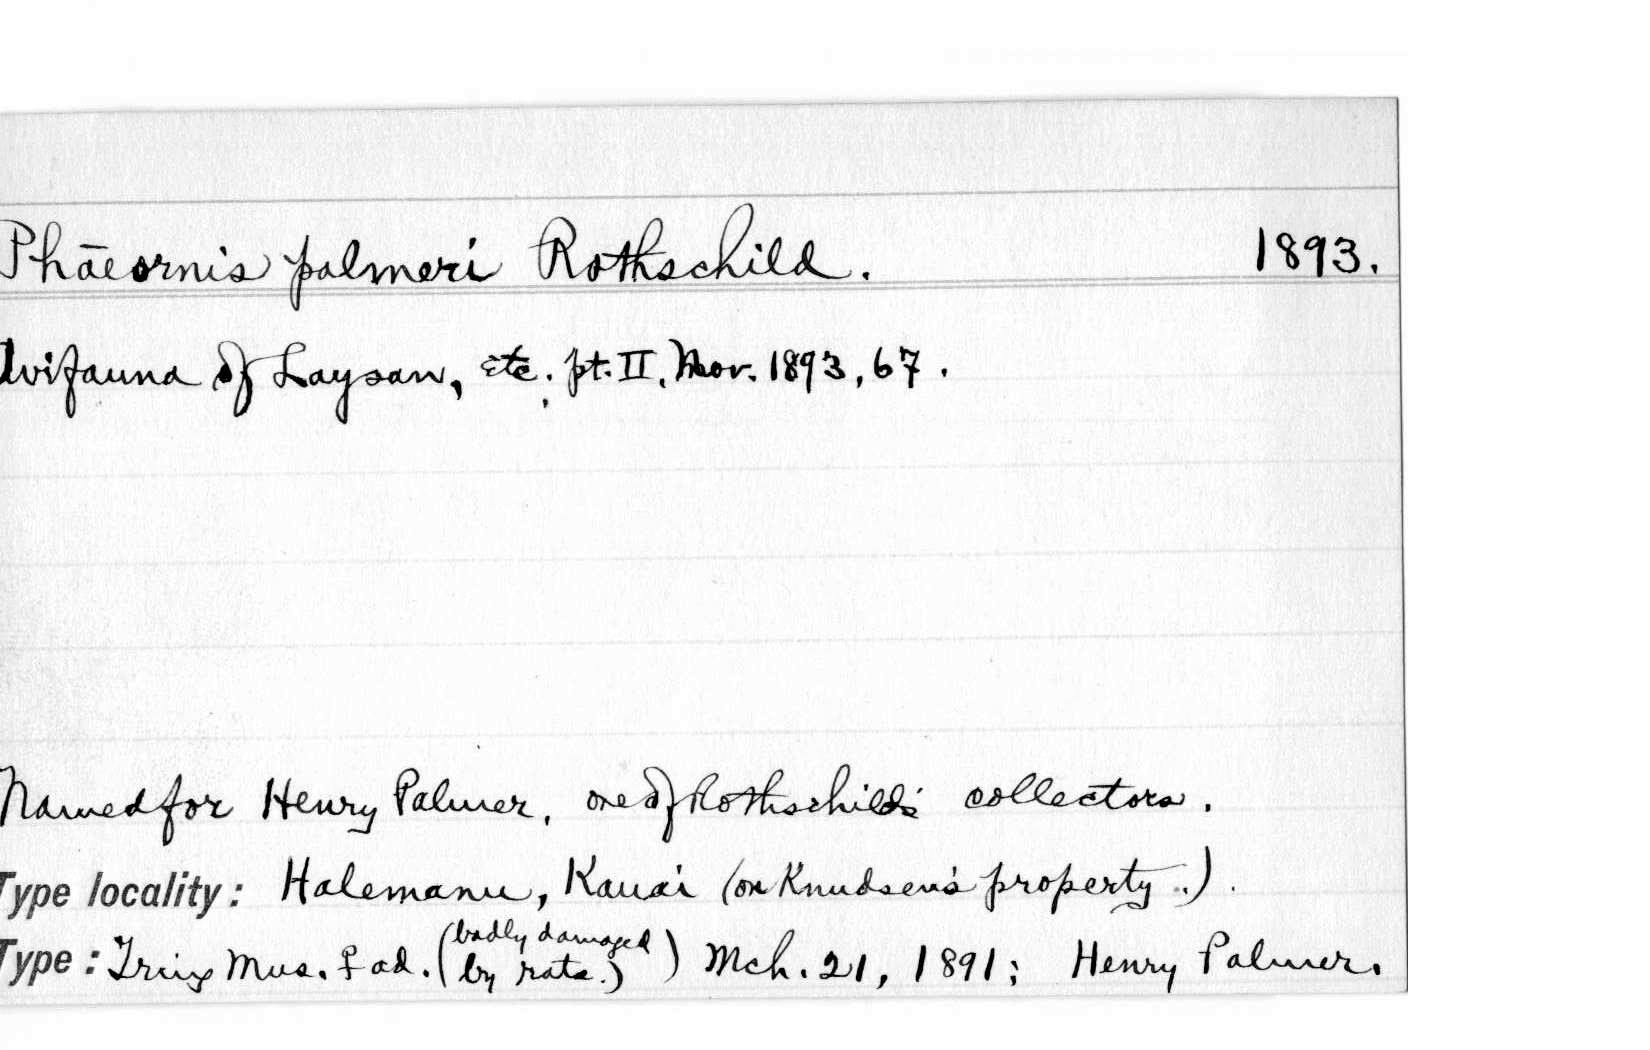 Phāeornis palmeri Rothschild. 1893.
Avifauna of Laysan, etc. pt. II, Nov. 1893, 67.
Named for Henry Palmer, one of Rothschild's collectors.
Type locality: Halemanu, Kauai (on Knudsen's property.).
Type: Tring Mus. ♀ ad. (badly damaged by rats.) Mch. 21, 1891; Henry Palmer.